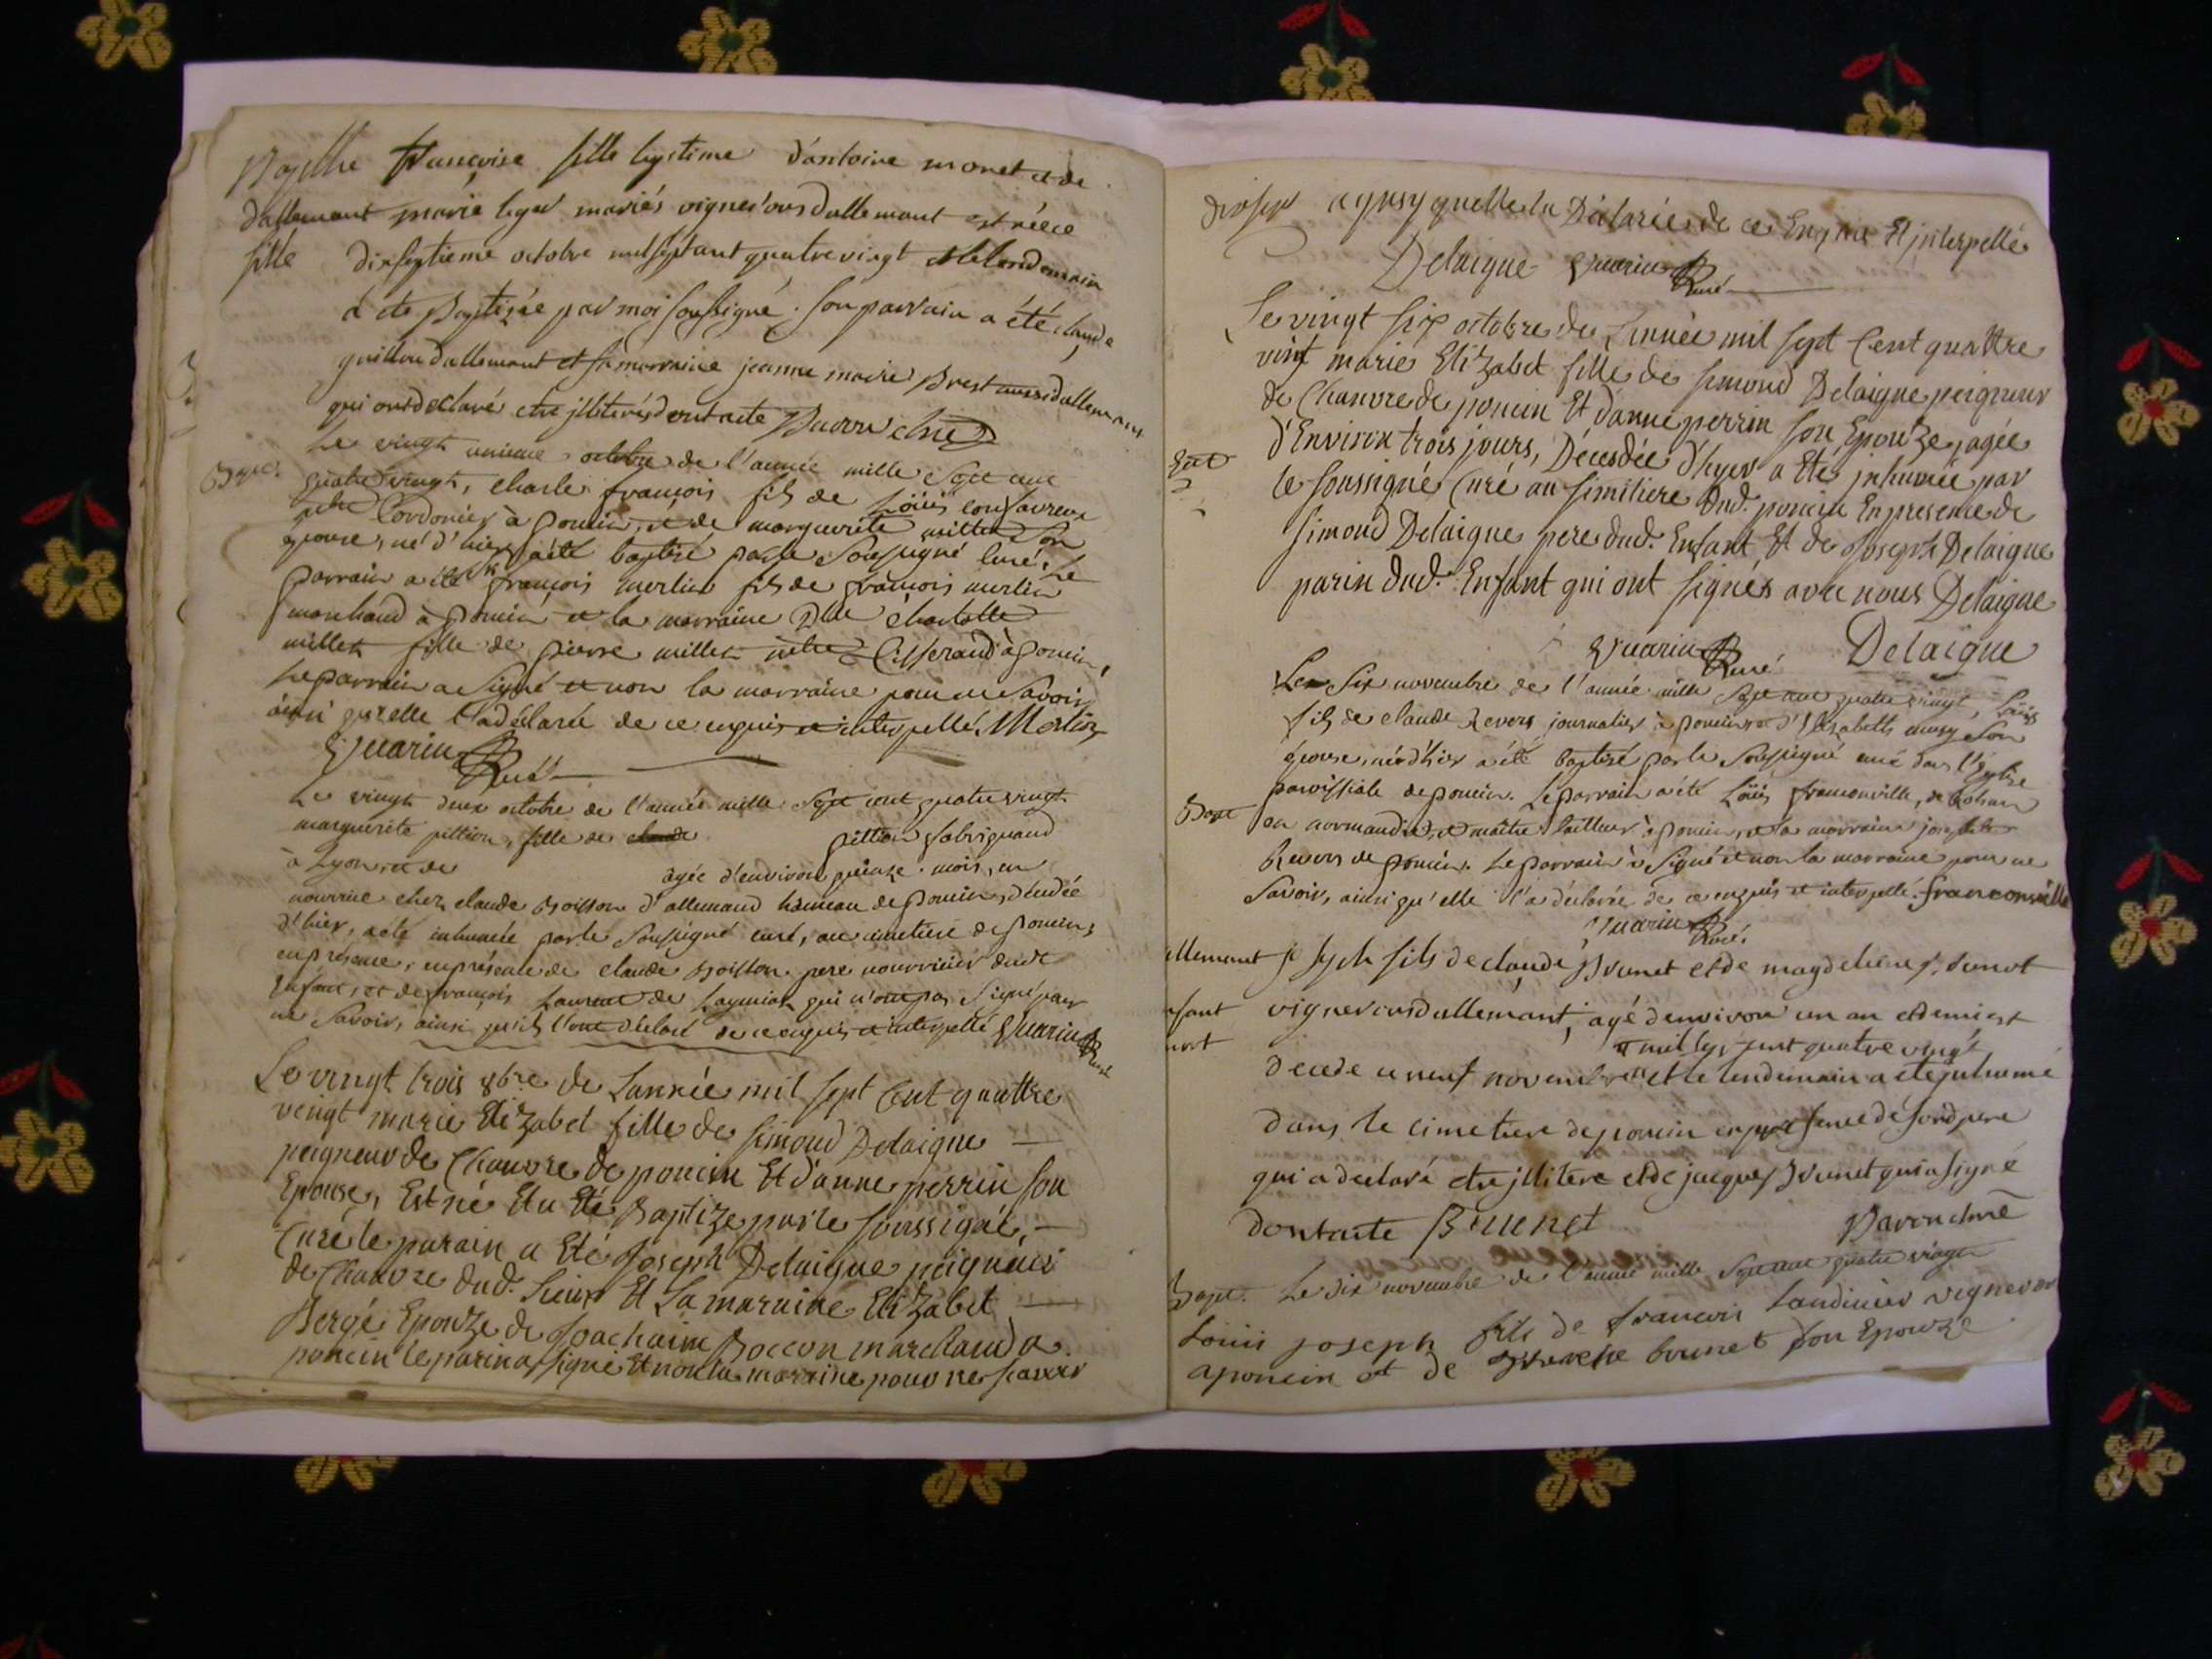 Baptême françoise fille legitime d'antoine monet et de
d'allemant marie leger mariés vignerons d'allemant est née ce
fille dixseptieme octobre mil sept cent quatre vingt et le lendemain
a été Baptizée par moi soussigné. son parrain a été claude
guillon d'allemant et sa marraine jeanne marie Brest aussi d'allemant
qui ont declaré etre illiterés dont acte
Bapt. Le vingt unieme octobre de l'année mille sept cent
quatre vingt, charle françois fils de Loüis
cordonier à poncin, et de marguerite millet son
epouse, né d'hier, a été baptisé par le soussigné curé. Le
parrain a été françois merlin fils de françois merlin
marchand à poncin et la marraine Dlle charlotte
millet fille de pierre millet tisserand à poncin,
Le parrain a signé et non la marraine pour ne savoir
ainsi qu'elle l'a déclaré de ce enquis et interpellé. Merlin
Guarin Curé
Le vingt deux octobre de l'année mille sept cent quatre vingt
marguerite pittion, fille de claude pittion fabriquand
à Lyon, et de agée d'environ quinze mois, en
nourrice chez claude Boisson d'allemand hameau de poncin, décédée
d'hier, a été inhumée par le soussigné curé, au cimetiere de poncin,
en présence, en présence de claude Boisson pere nourricier dudt
Enfant, et de françois Laurent de qui n'ont pas signé pour
ne savoir, ainsi qu'ils l'ont déclaré de ce enquis et interpellé Guarin Curé
Le vingt trois 8bre de Lannée mil sept Cent quattre
vengt marie Elizabet fille de Simond Delaigne
peigneur de Chanvre de poncin Et d'anne perrin son
Epouse, Est né Et a Eté Baptize par le soussigné,
Curé le parain a Eté Joseph Delaigne peigneur
de Chanvre dud. Lieux Et La maraine Elizabet
Bergé Epouze de Joachaim Boccon marchand a
poncin le parin a signé Et non la marraine pour ne scavoir
ainsy quelle la Délarée de ce Enquis Et interpellé
Delaigne Guarin Curé
Le vingt six octobre de Lannée mil sept Cent quattre
vint marie Elizabet fille de Simond Delaigne peigneur
de Chanvre de poncin Et d'anne perrin son Epouze, agée
d'Environ trois jours, Décédée d'hyer a Eté inhumée par
le soussigné Curé au similiere dud. poncin En presence de
Simond Delaigne pere dud. Enfant Et de Joseph Delaigne
parin dud. Enfant qui ont signés avec nous Delaigne
Guarin Curé Delaigne
Le six novembre de l'année mille sept cent quatre vingt, Loüis
fils de claude Revers journalier à poncin et d'Elizabeth son
épouse, né d'hier a été baptisé par le soussigné curé dans l'Eglise
paroissiale de poncin. Le parrain a été Loüis franconville, de
Bapt en normandie, et maitre tailleur à poncin, et la marraine
Revers de poncin. Le parrain a signé et non la marraine pour ne
savoir, ainsi qu'elle l'a déclarée de ce enquis et interpellé. franconville
Guarin Curé.
allemant joseph fils de claude Brunet et de magdelaine
enfant vignerons d'allemant, agé d'environ un an et demi est
mort mil sept cent quatre vingt
decede ce neuf novembre et le lendemain a eté inhumé
dans le cimetiere de poncin en presence de son pere
qui a declaré etre illitere et de jacques Brunet qui a signé
dont acte Brunet
Bapt. Le dix novembre de l'année mille sept cent quatre vingt
Louis joseph fils de francois vigneron
a poncin et de brunet son Epouze